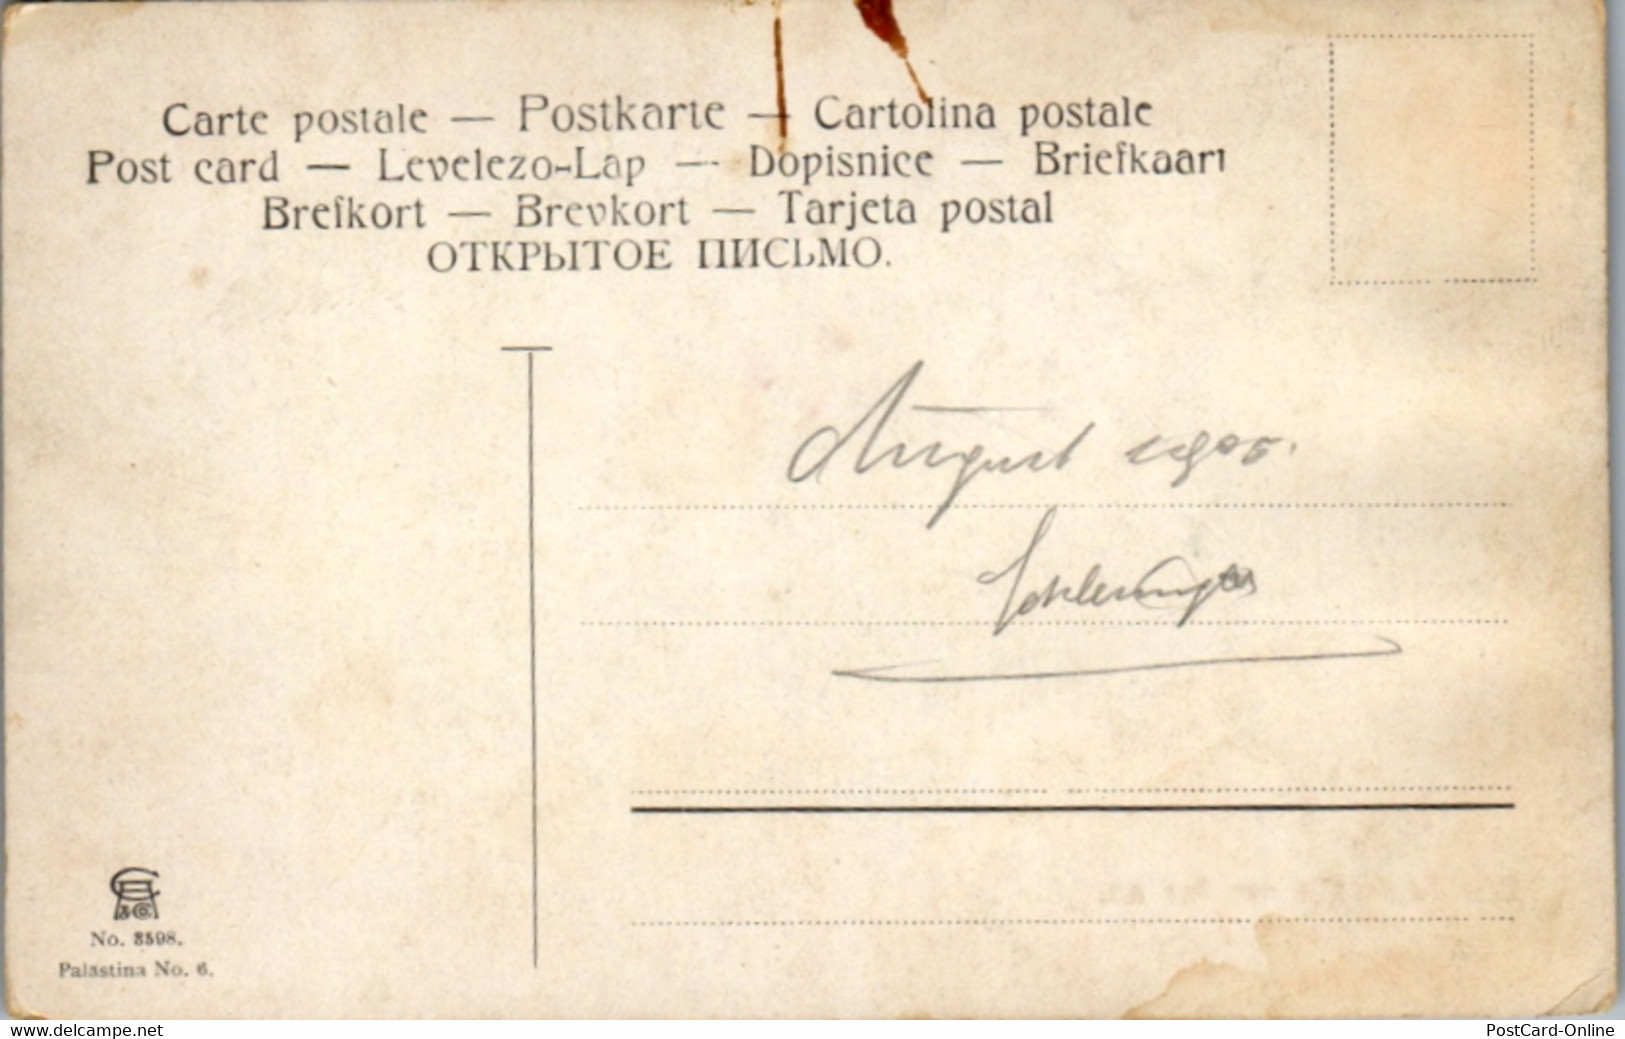 Carte postale — Postkarte — Cartolina postale
Post card — Levelezo-Lap — Dopisnice — Briefkaart
Brefkort — Brevkort — Tarjeta postal
ОТКРЫТОЕ ПИСЬМО.
August 1905.
No. 3598.
Palästina No. 6.
www.delcampe.net
PostCard-Online